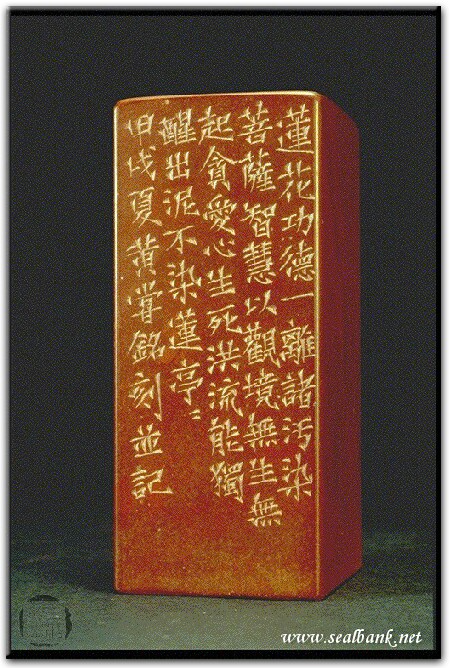 蓮花功德一離諸汚染
菩薩智慧以觀境無生無
起貪愛心生死洪流能獨
醒出泥不染蓮亭〻
戊夏黃嘗銘刻並記
www.sealbank.net